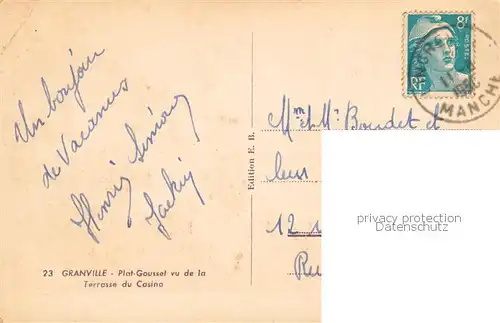 Un bonjour
de Vacances
Henri Simone
Jacky
23 GRANVILLE - Plat-Gousset vu de la
Terrasse du Casino
Edition E. B.
8F
POSTES
RF
MANCHE
Mme et Mr Boudet et
leur
12
Ru
privacy protection
datenschutz